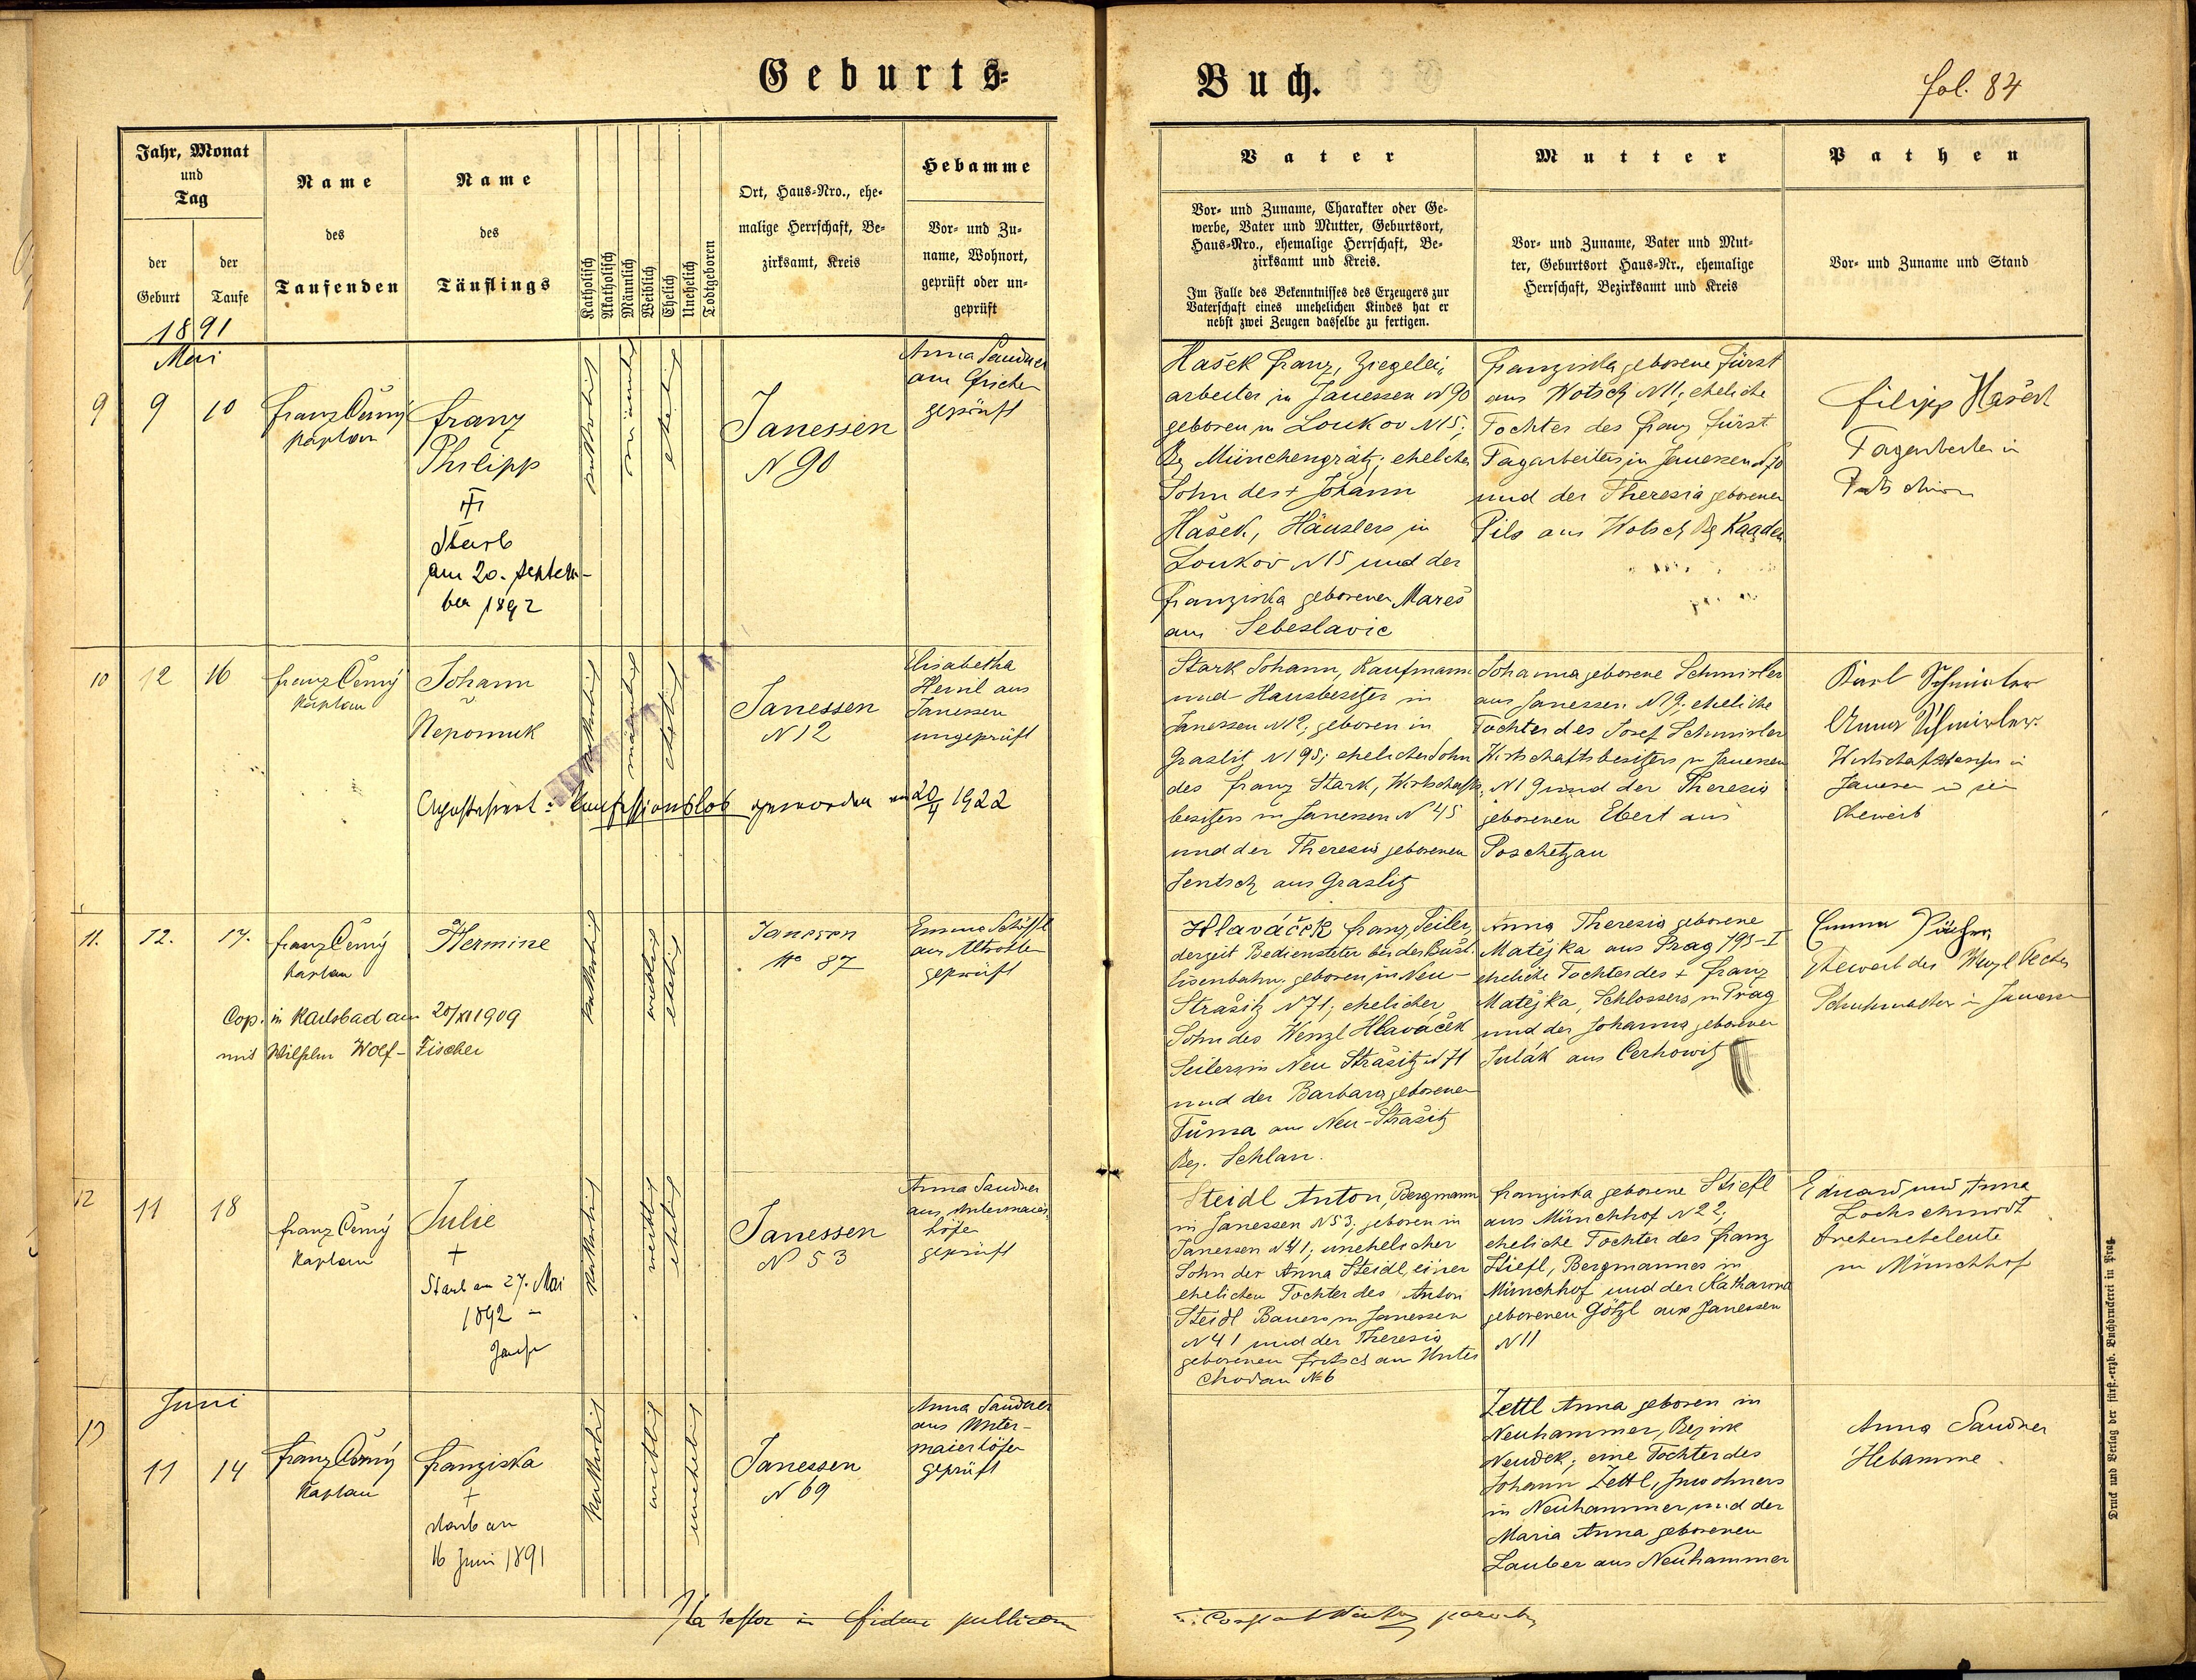 Geburts-
Buch.
fol. 84
Jahr, Monat
und
Tag
der
Geburt
der
Taufe
1891
Name
des
Taufenden
Name
des
Täuflings
Katholisch
Akatholisch
Männlich
Weiblich
Ehelich
Unehelich
Todtgeboren
Ort, Haus-Nro., ehe-
malige Herrschaft, Be-
zirksamt, Kreis
Hebamme
Vor- und Zu-
name, Wohnort,
geprüft oder un-
geprüft
Vater
Vor- und Zuname, Charakter oder Ge-
werbe, Vater und Mutter, Geburtsort,
Haus-Nro., ehemalige Herrschaft, Be-
zirksamt und Kreis.
Im Falle des Bekenntnisses des Erzeugers zur
Vaterschaft eines unehelichen Kindes hat er
nebst zwei Zeugen dasselbe zu fertigen.
Mutter
Vor- und Zuname, Vater und Mut-
ter, Geburtsort Haus-Nr., ehemalige
Herrschaft, Bezirksamt und Kreis
Pathen
Vor- und Zuname und Stand
Mai
9
9
10
Franz Černý
Kaplan
Franz
Philipp
Starb
am 20. Septem-
ber 1892
katholisch
männlich
ehelich
Janessen
N 90
Anna Sandner
geprüft
Hašek Franz, Ziegelei-
arbeiter in Janessen N 90
geboren in Loukov N 15;
Bz Münchengrätz; ehelicher
Sohn des + Johann
Hašek, Häuslers in
Loukov N 15 und der
Franziska geborenen Mareš
aus Sebeslavic
Franziska geborene Fürst
aus Wotsch N 11; eheliche
Tochter des Franz Fürst
Tagarbeiters in Janessen N 90
und der Theresia geborenen
Pils aus Wotsch Bz Kaaden
Filipp Hašek
Tagarbeiter in
10
12
16
Franz Černý
Kaplan
Johann
Nepomuk
katholisch
männlich
ehelich
Janessen
N 12
Elisabetha
Heinl aus
Janessen
ungeprüft
konfessionslos geworden am 20/4 1922
Stark Johann, Kaufmann
und Hausbesitzer in
Janessen N 12; geboren in
Graslitz N 195; ehelicher Sohn
des Franz Stark, Wirtschafts-
besitzers in Janessen N 45
und der Theresia geborenen
Jentsch aus Graslitz
Johanna geborene Schmirler
aus Janessen N 19; eheliche
Tochter des Josef Schmirler
Wirtschaftsbesitzers in Janessen
N 19 und der Theresia
geborenen Ebert aus
Poschetzau
Karl Schmirler
Anna Schmirler
Wirtschaftsbesitzer in
Janessen u sein
Eheweib
11.
12.
17.
Franz Černý
Kaplan
Hermine
katholisch
weiblich
ehelich
Janessen
No 87
Emma
aus Altrohlau
geprüft
Cop. in Karlsbad am 20/XI 1909
mit Wilhelm Wolf-Fischer
Hlaváček Franz, Seiler,
derzeit Bediensteter bei der Bušt.
Eisenbahn, geboren in Neu-
Strašitz N 71; ehelicher
Sohn des Wenzl Hlaváček
Seilers in Neu Strašitz N 71
und der Barbara geborenen
Tůma aus Neu-Strašitz
Bez. Schlan.
Anna Theresia geborene
Matějka aus Prag 795-I
eheliche Tochter des + Franz
Matějka, Schlossers in Prag
und der Johanna geborenen
Julák aus Cerhowitz
Emma
Eheweib des Wenzl
in Janessen
12
11
18
Franz Černý
Kaplan
Julie
+
Starb am 27. Mai
1892 -
katholisch
weiblich
ehelich
Janessen
N 53
Anna Sandner
aus Untermaier-
höfen
geprüft
Steidl Anton, Bergmann
in Janessen N 53; geboren in
Janessen N 41; unehelicher
Sohn der Anna Steidl, einer
ehelichen Tochter des Anton
Steidl Bauers in Janessen
N 41 und der Theresia
geborenen Fritsch aus Unter
Chodau N 6
Franziska geborene Stiefl
aus Münchhof N 22;
eheliche Tochter des Franz
Stiefl, Bergmannes in
Münchhof und der Katharina
geborenen Götzl aus Janessen
N 11
Eduard und Anna
Lochschmidt
in Münchhof
Juni
13
11
14
Franz Černý
Kaplan
Franziska
+
starb am
16 Juni 1891
katholisch
weiblich
unehelich
Janessen
N 69
Anna Sandner
aus Unter-
maierhöfen
geprüft
Zettl Anna geboren in
Neuhammer, Bezirk
Neudek; eine Tochter des
Johann Zettl, Inwohners
in Neuhammer, und der
Maria Anna geborenen
Lauber aus Neuhammer
Anna Sandner
Hebamme.
Ita testor in fidem publicam
Druck und Verlag der fürst.-erzb. Buchdruckerei in Prag.